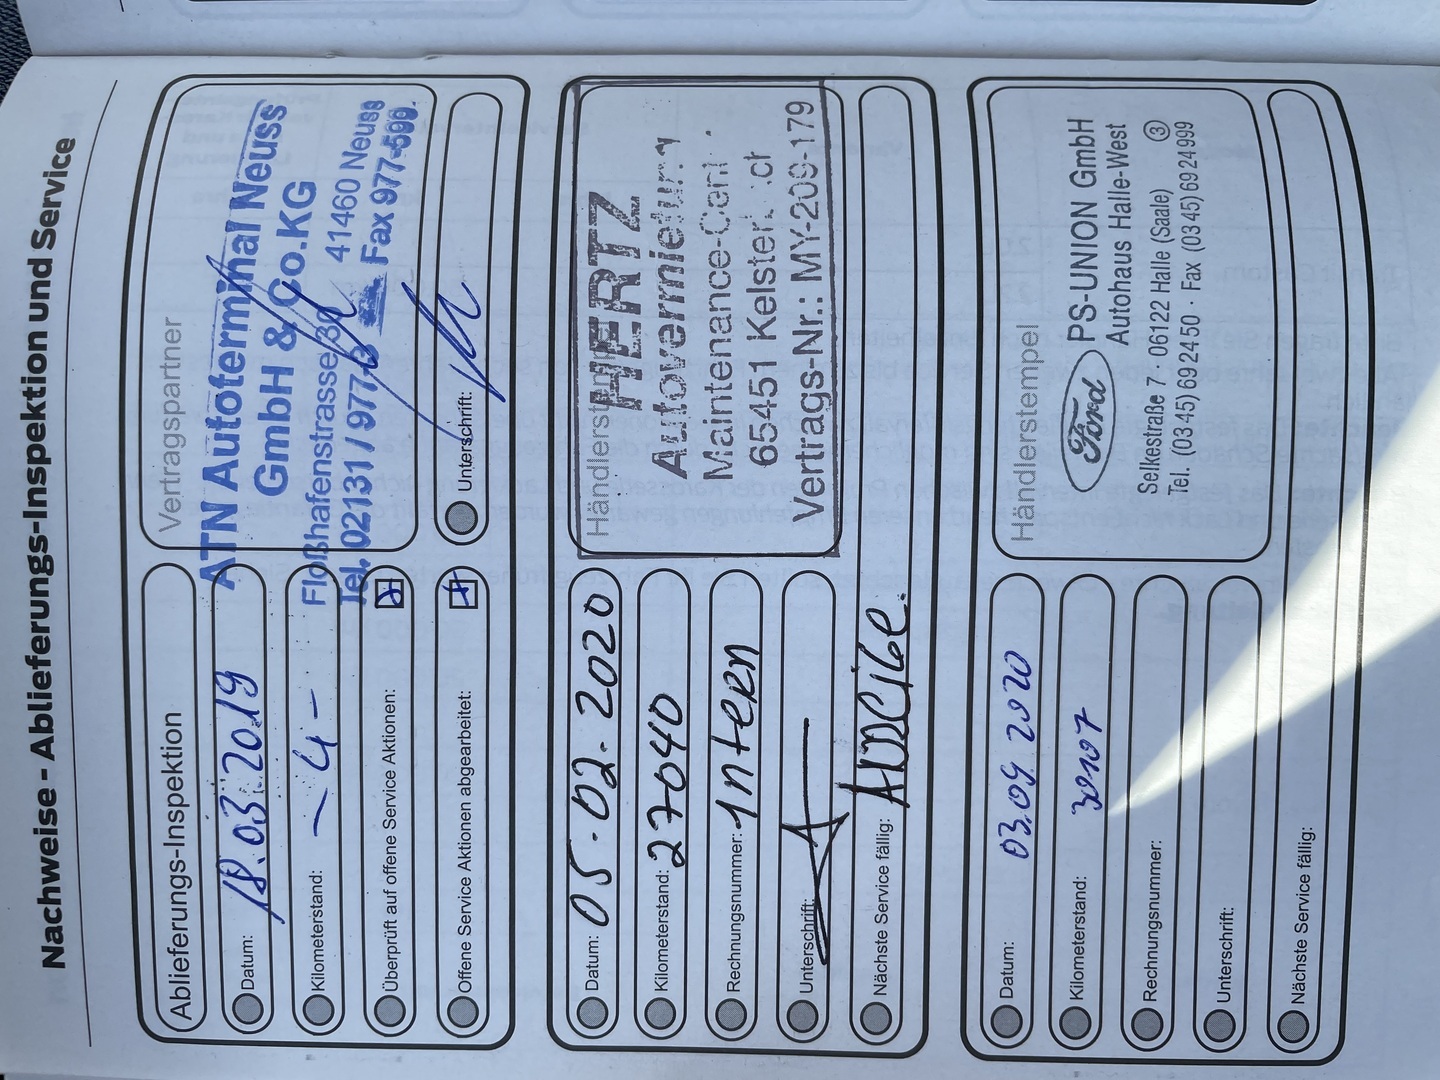 Nachweise - Ablieferungs-Inspektion und Service
Ablieferungs-Inspektion
Datum: 18.03.2019
Kilometerstand: -4-
Überprüft auf offene Service Aktionen: X
Offene Service Aktionen abgearbeitet: X
Vertragspartner
ATN Autoterminal Neuss
GmbH & Co.KG
Floßhafenstrasse 41460 Neuss
Tel. 02131/977- Fax 977-599.
Unterschrift:
Datum: 05.02.2020
Kilometerstand: 27040
Rechnungsnummer: Intern
Unterschrift:
Nächste Service fällig:
HERTZ
Autovermietung
Maintenance-Cent
65451 Kelster
Vertrags-Nr.: MY-209-179
Datum: 03.09.2020
Kilometerstand:
Rechnungsnummer:
Unterschrift:
Nächste Service fällig:
Händlerstempel
Ford PS-UNION GmbH
Autohaus Halle-West
Selkestraße 7 · 06122 Halle (Saale) 3
Tel. (03 45) 6 92 24 50 · Fax (03 45) 69 24 999